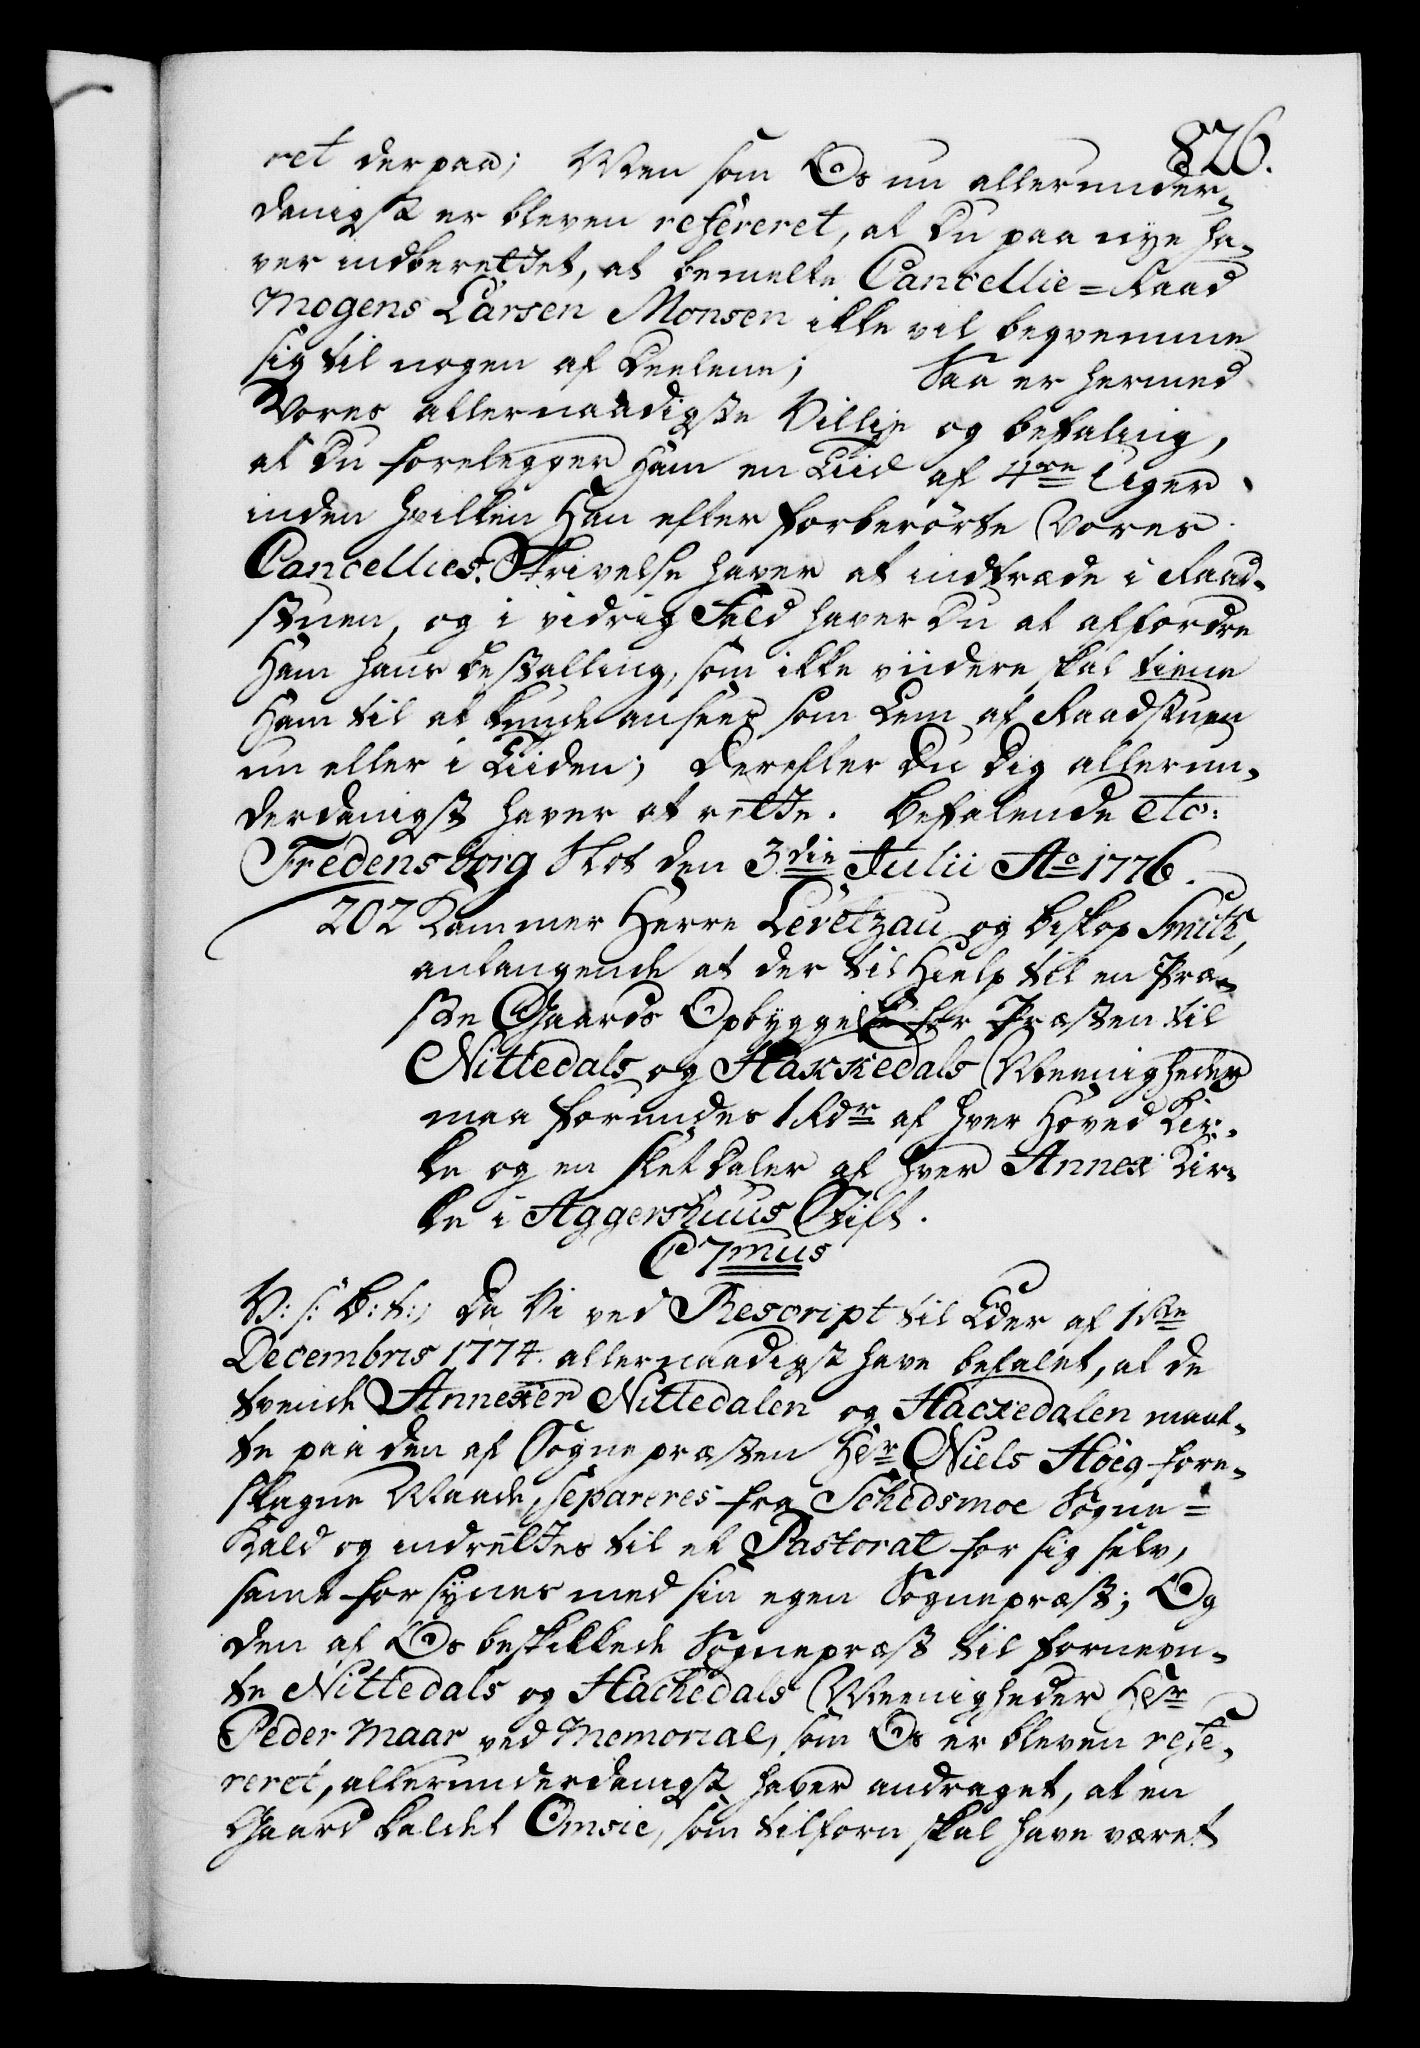 826.
ret derpaa; Men som Os nu allerunder-
danigst er bleven refereret, at Du paa nye ha-
ver indberettet, at bemelte Cancellie=Raad
Mogens Larsen Monsen ikke vil beqvemme
sig til nogen af Deelene; Saa er hermed
Vores allernaadigste Villie og befaling,
at Du forelegger Ham en Tiid af 4re Uger
inden hvilken Han efter forberørte Vores
Cancellies Skrivelse haver at indtræde i Raad-
stuen, og i vidrig Fald haver Du at affordre
Ham hans bestalling, som ikke viidere skal tiene
Ham til at kunde ansees som Lem af Raadstuen
nu eller i Tiiden; Derefter Du Dig allerun-
derdanigst haver at rette. Befalende etc:
Fredensborg Slot den 3die Julii Ao 1776.
202 Kammer Herre Levetzau og biskop Smith,
anlangende at der til Hielp til en Præ-
ste Gaards Opbyggelse for Præsten til
Nittedals og Hakkedals Meenigheder
maa forundes 1 Rdr af hver Hoved Kir-
ke og en Slet Daler af hver Annex Kir-
ke i Aggershuus Stift.
C 7mus
V: s: B: t:; Da Vi ved Rescript til Eder af 1ste
Decembris 1774. allernaadigst have befalet, at de
tvende Annexer Nittedalen og Hackedalen maat-
te paa den af Sognepræsten Hr Niels Höeg fore-
slagne Maade, separeres fra Schedsmoe Sogne=
Kald og indrettes til et Pastorat for sig selv,
samt forsynes med sin egen Sognepræst; Og
den af Os beskikkede Sognepræst til fornevn-
te Nittedals og Hackedals Meenigheder Hr
Peder Maar ved Memorial, som Os er bleven refe-
reret, allerunderdanigst haver andraget, at en
Gaard kaldet Omsie, som tilforn skal have været